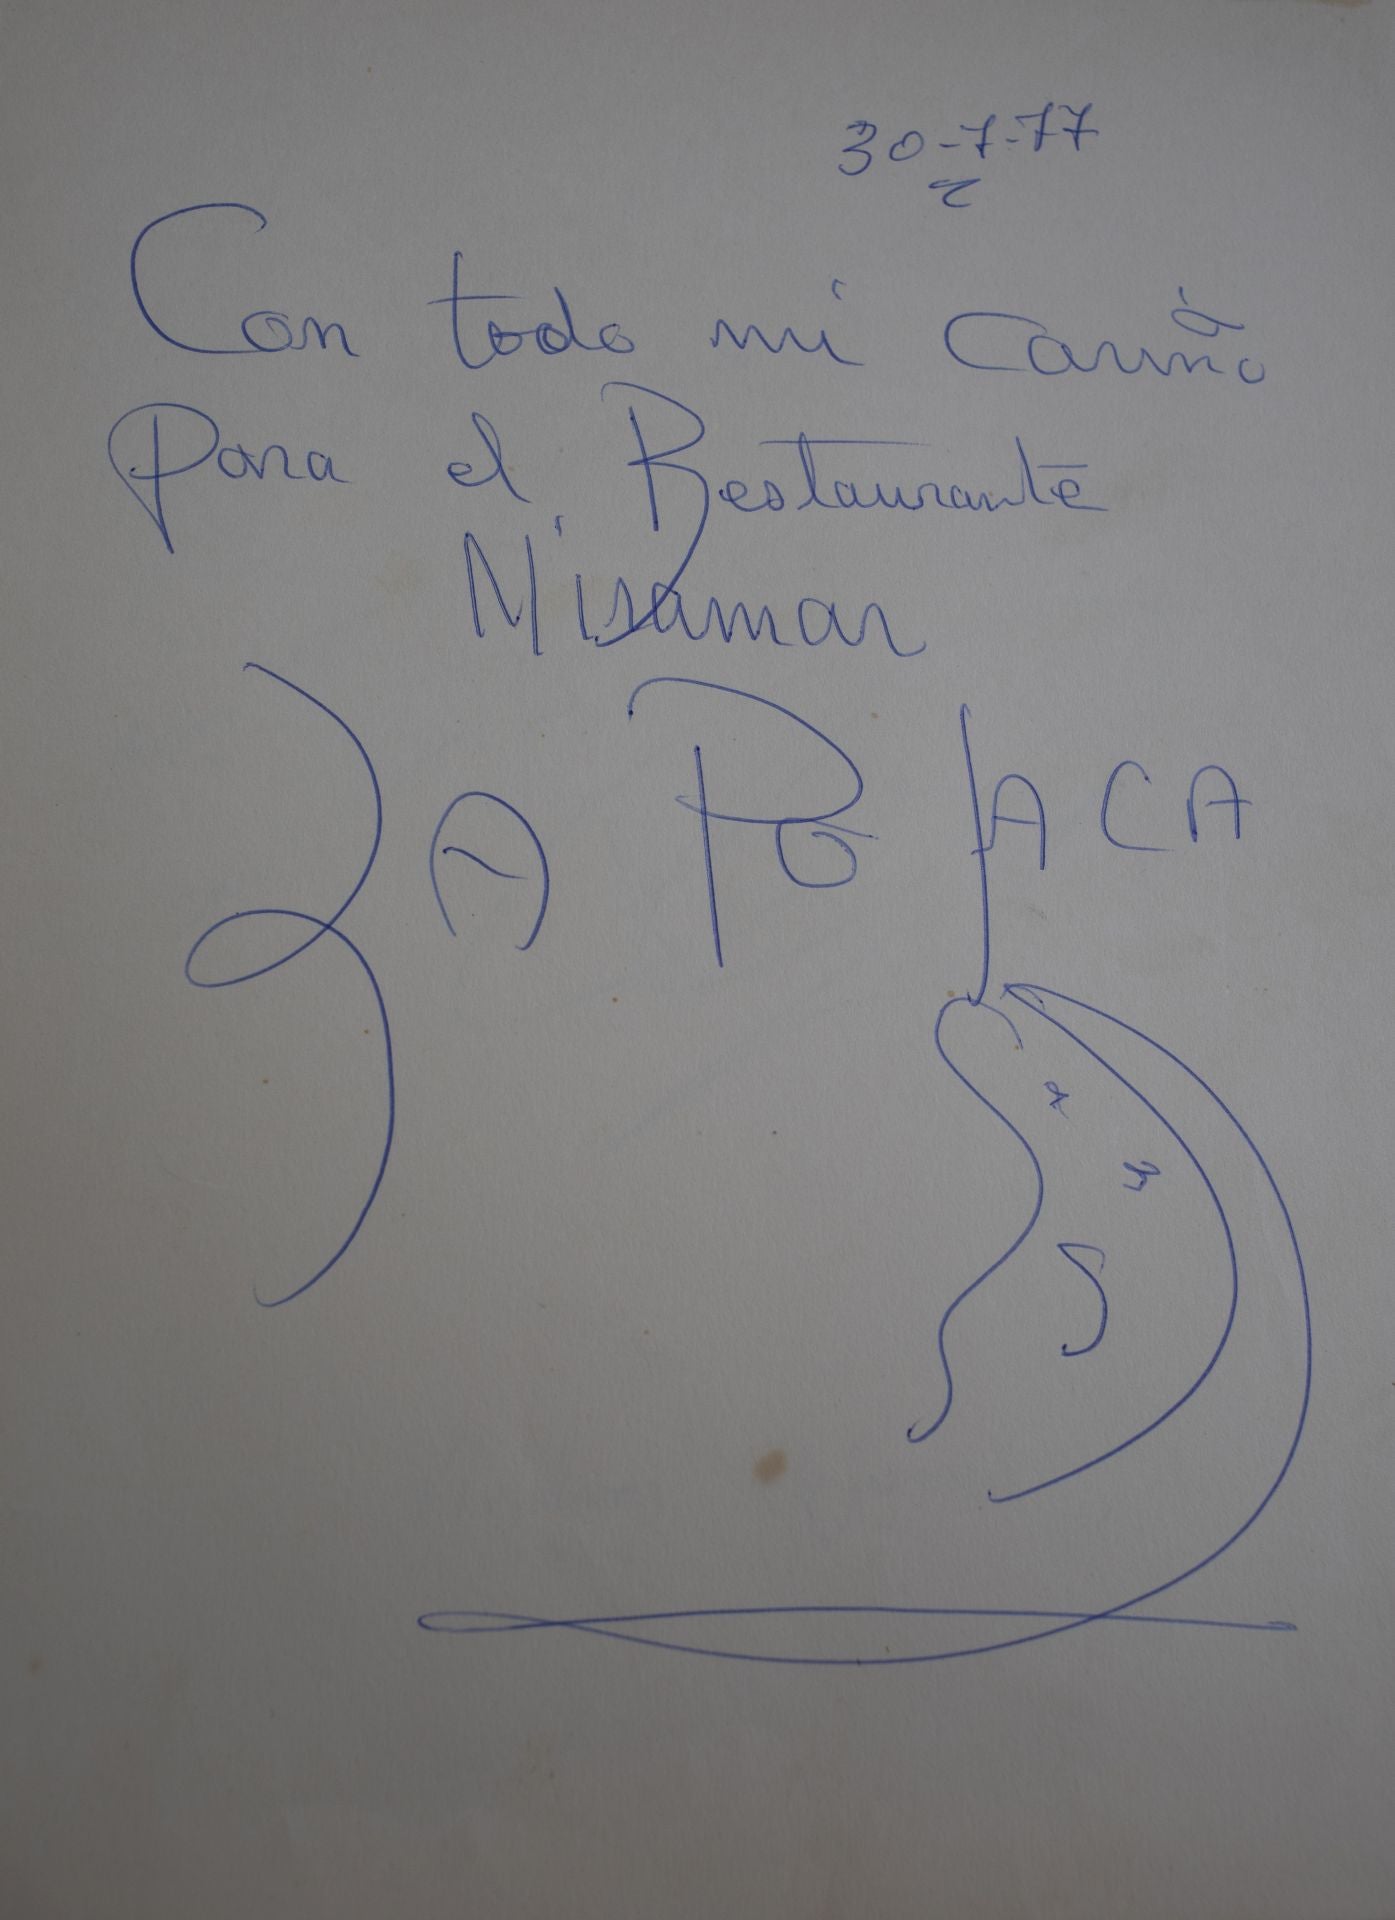 30-7-77
Con todo mi cariño
para el Restaurante
Miramar
La Polaca